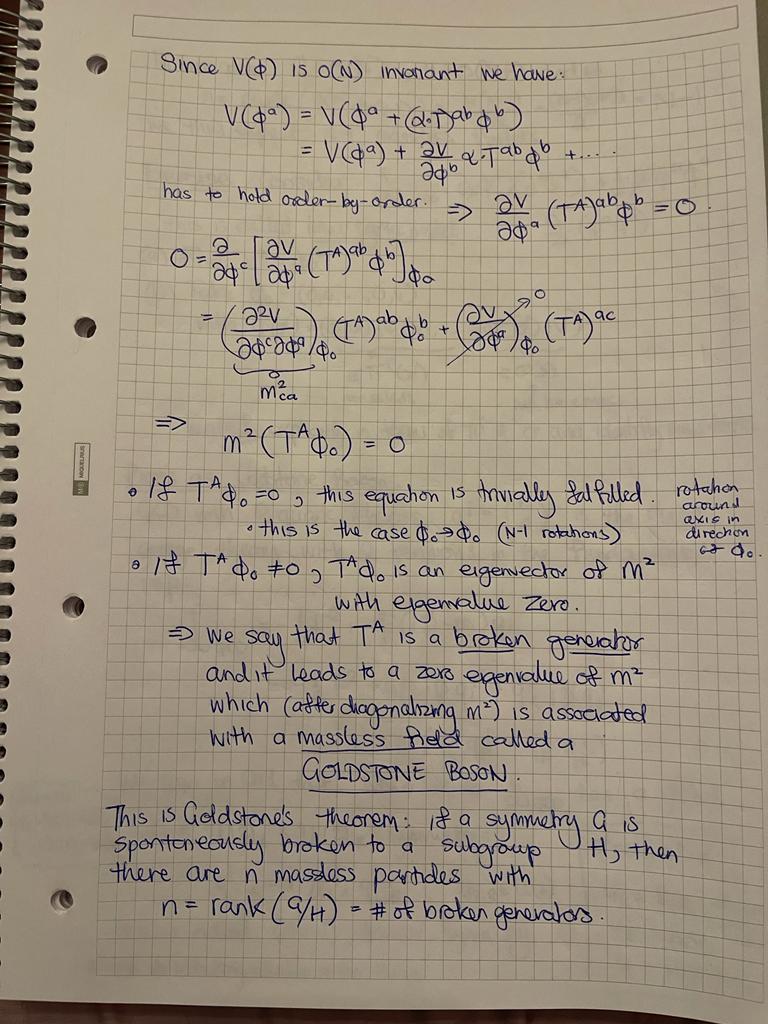 Since V(ϕ) is O(N) invariant we have:
V(ϕᵃ) = V(ϕᵃ + (α·T)ᵃᵇϕᵇ)
= V(ϕᵃ) + ∂V/∂ϕᵇ α·Tᵃᵇϕᵇ + ....
has to hold order-by-order. ⇒ ∂V/∂ϕᵃ (Tᴬ)ᵃᵇϕᵇ = 0.
0 = ∂/∂ϕᶜ [∂V/∂ϕᵃ (Tᴬ)ᵃᵇ ϕᵇ]ϕ₀
= (∂²V/∂ϕᶜ∂ϕᵃ)ϕ₀ (Tᴬ)ᵃᵇ ϕ₀ᵇ + (∂V/∂ϕᵃ)ϕ₀ → 0 (Tᴬ)ᵃᶜ
m²ca
⇒
m²(Tᴬϕ₀) = 0
• If Tᴬϕ₀ = 0, this equation is trivially fulfilled.
• this is the case ϕ₀→ϕ₀ (N-1 rotations)
rotation
around
axis in
direction
of ϕ₀.
• If Tᴬϕ₀ ≠ 0, Tᴬϕ₀ is an eigenvector of m²
with eigenvalue zero.
⇒ we say that Tᴬ is a broken generator
and it leads to a zero eigenvalue of m²
which (after diagonalizing m²) is associated
with a massless field called a
GOLDSTONE BOSON.
This is Goldstone's theorem: if a symmetry G is
spontaneously broken to a subgroup H, then
there are n massless particles with
n = rank (G/H) = # of broken generators.
MIQUELRIUS